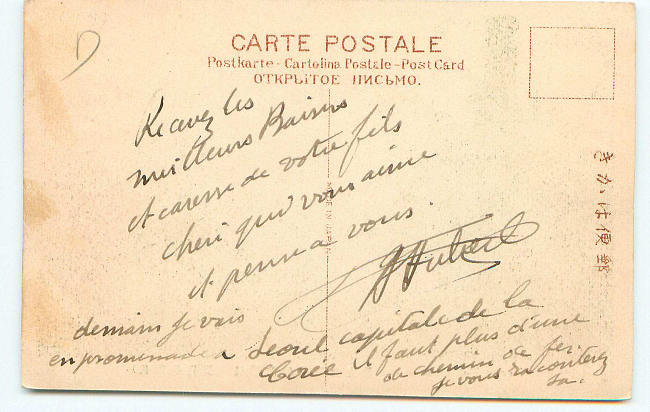 D
CARTE POSTALE
Postkarte - Cartolina Postale - Post Card
ОТКРЫТОЕ ПИСЬМО.
きかは便郵
MADE IN JAPAN
Recevez les
meilleurs Baisers
et caresse de votre fils
cheri qui vous aime
et pense a vous.
Hubert
demain je vais
en promenade a Seoul capitale de la
Corée il faut plus d'une
de chemin de fer.
je vous raconterez
sa.